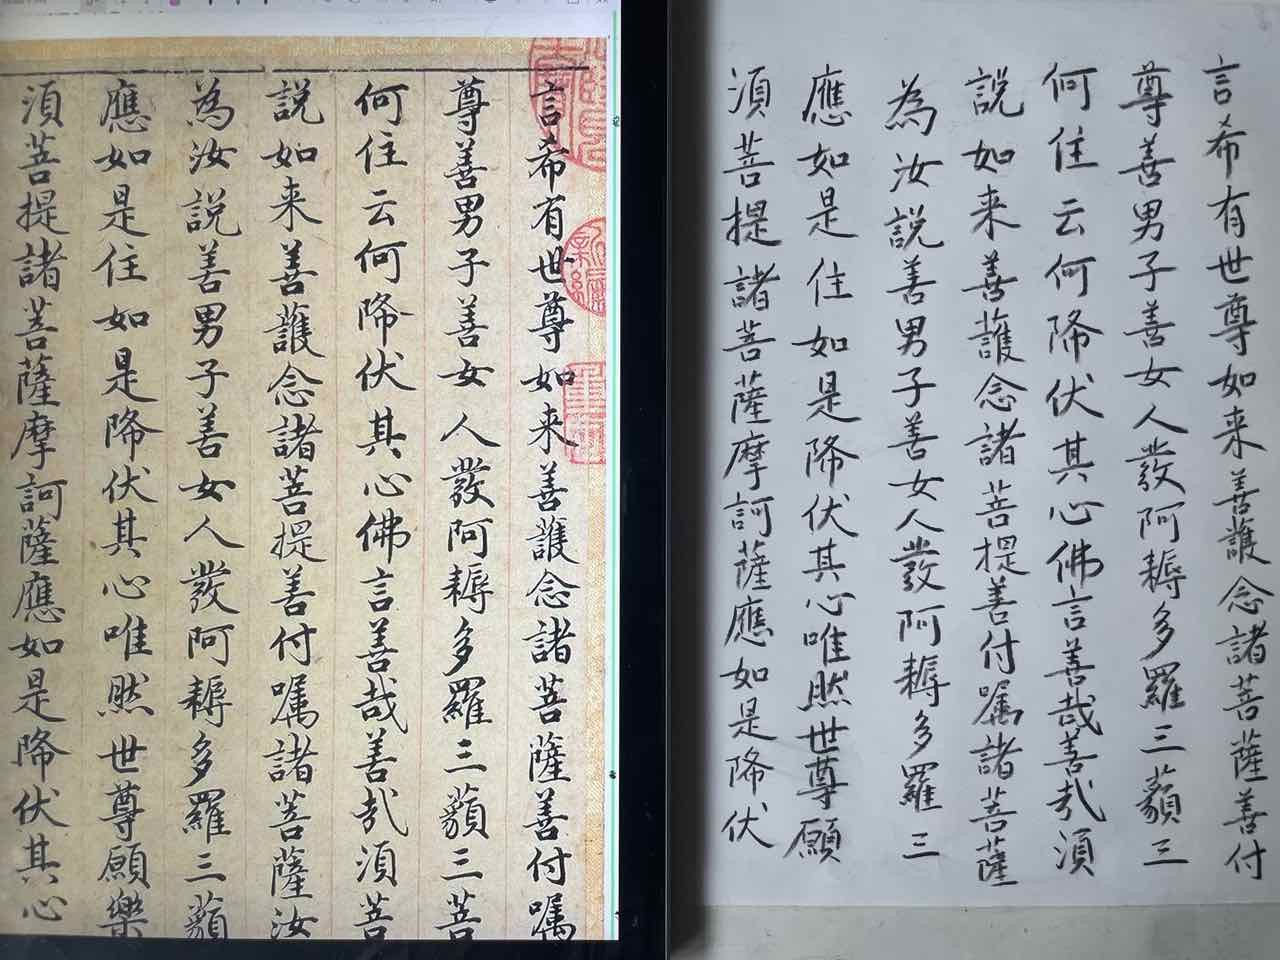 言希有世尊如来善護念諸菩薩善付嘱
尊善男子善女人發阿耨多羅三藐三菩
何住云何降伏其心佛言善哉善哉須菩
說如来善護念諸菩提善付嘱諸菩薩汝
為汝說善男子善女人發阿耨多羅三藐
應如是住如是降伏其心唯然世尊願樂
須菩提諸菩薩摩訶薩應如是降伏其心
言希有世尊如来善護念諸菩薩善付
尊善男子善女人發阿耨多羅三藐三
何住云何降伏其心佛言善哉善哉須
說如来善護念諸菩提善付嘱諸菩薩
為汝說善男子善女人發阿耨多羅三
應如是住如是降伏其心唯然世尊願
須菩提諸菩薩摩訶薩應如是降伏